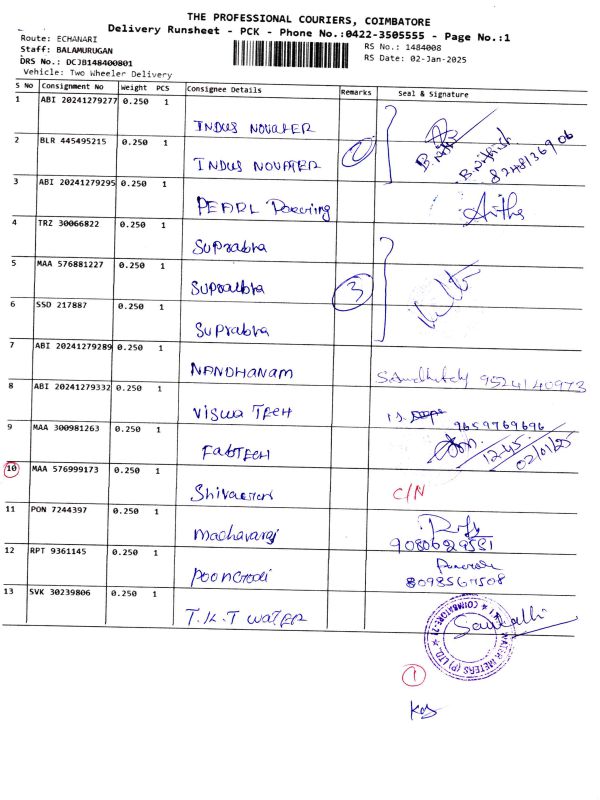 THE PROFESSIONAL COURIERS, COIMBATORE
Delivery Runsheet - PCK - Phone No.:0422-3505555 - Page No.:1
Route: ECHANARI
RS No.: 1484008
Staff: BALAMURUGAN
RS Date: 02-Jan-2025
DRS No.: DCJB148400801
Vehicle: Two Wheeler Delivery
S No Consignment No Weight PCS Consignee Details Remarks Seal & Signature
1 ABI 20241279277 0.250 1
INDUS NOVATER
2 BLR 445495215 0.250 1
INDUS NOVATER 2 B.Nitish 8248136906
3 ABI 20241279295 0.250 1
PEARL
4 TRZ 30066822 0.250 1
Suprabha
5 MAA 576881227 0.250 1
Suprabha 3
6 SSD 217887 0.250 1
Suprabha
7 ABI 20241279289 0.250 1
NANDHANAM 9524140973
8 ABI 20241279332 0.250 1
Viswa TECH
9 MAA 300981263 0.250 1
9659769696
FabTECH 12.45
02/01/25
10 MAA 576999173 0.250 1
C/N
11 PON 7244397 0.250 1
Madhavaraj
12 RPT 9361145 0.250 1
13 SVK 30239806 0.250 1
T.K.T WATER
WATER METERS (P) LTD.
COIMBATORE-21
1